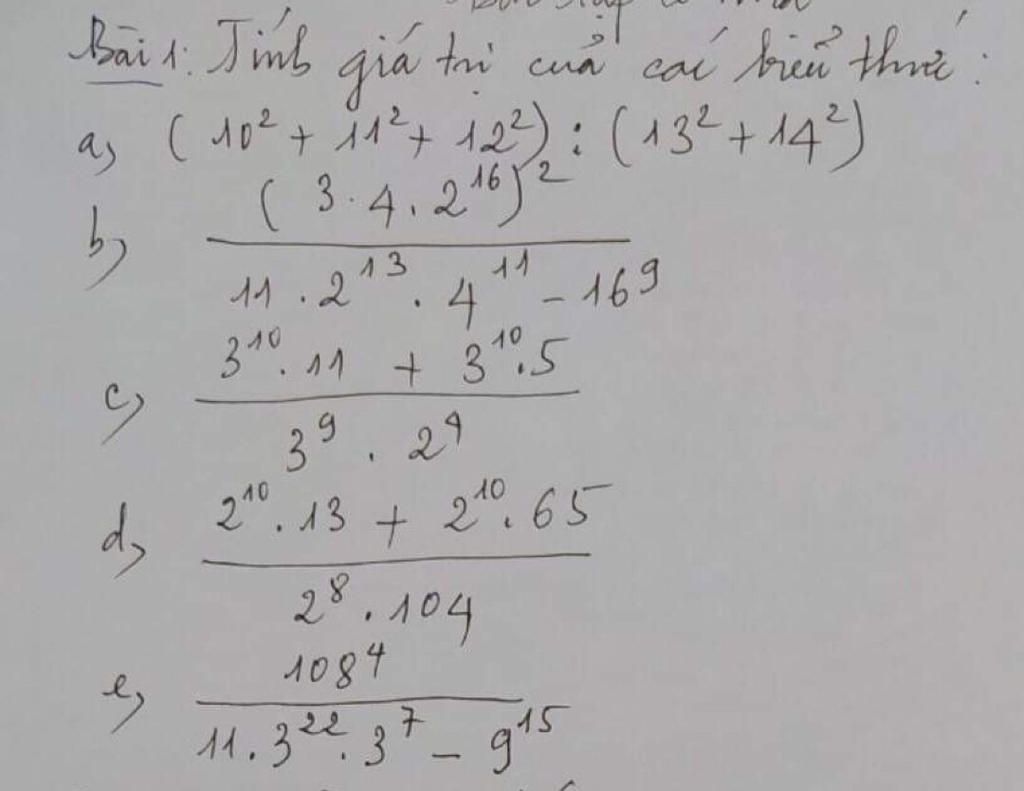 Bài 1: Tính giá trị của các biểu thức:
a, (10² + 11² + 12²) : (13² + 14²)
b, (3 · 4 . 2¹⁶)²
11 . 2¹³ . 4¹¹ - 16⁹
c, 3¹⁰ . 11 + 3¹⁰ . 5
3⁹ . 2⁴
d, 2¹⁰ . 13 + 2¹⁰ . 65
2⁸ . 104
e, 108⁴
11 . 3²² . 3⁷ - 9¹⁵